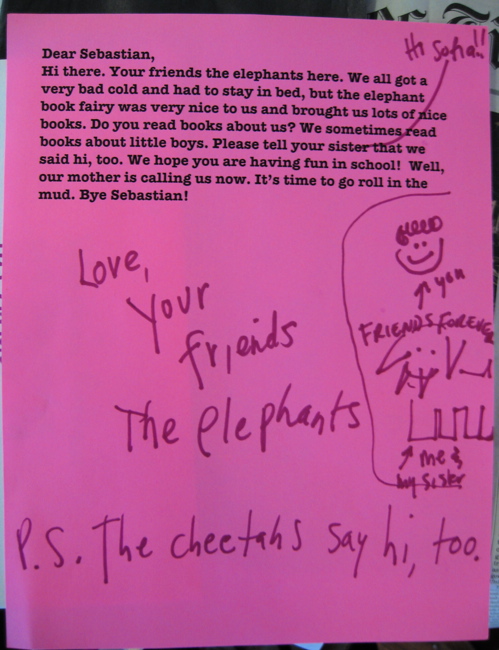 Hi Sofia!!
Dear Sebastian,
Hi there. Your friends the elephants here. We all got a
very bad cold and had to stay in bed, but the elephant
book fairy was very nice to us and brought us lots of nice
books. Do you read books about us? We sometimes read
books about little boys. Please tell your sister that we
said hi, too. We hope you are having fun in school!  Well,
our mother is calling us now. It's time to go roll in the
mud. Bye Sebastian!
Love,
Your
friends
The elephants
you
FRIENDS FOREVER
me &
my sister
P.S. The cheetahs say hi, too.